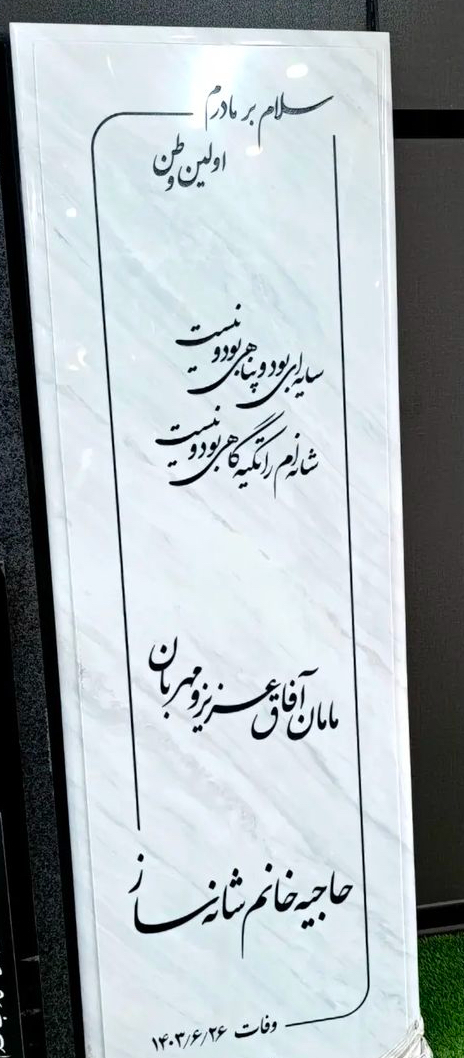 سلام بر مادرم
اولین وطن
سایه ای بود و پناهی بود و نیست
شانه ام را تکیه گاهی بود و نیست
مامان آفاق عزیز و مهربان
حاجیه خانم شانه ساز
وفات ۱۴۰۳/۶/۲۶